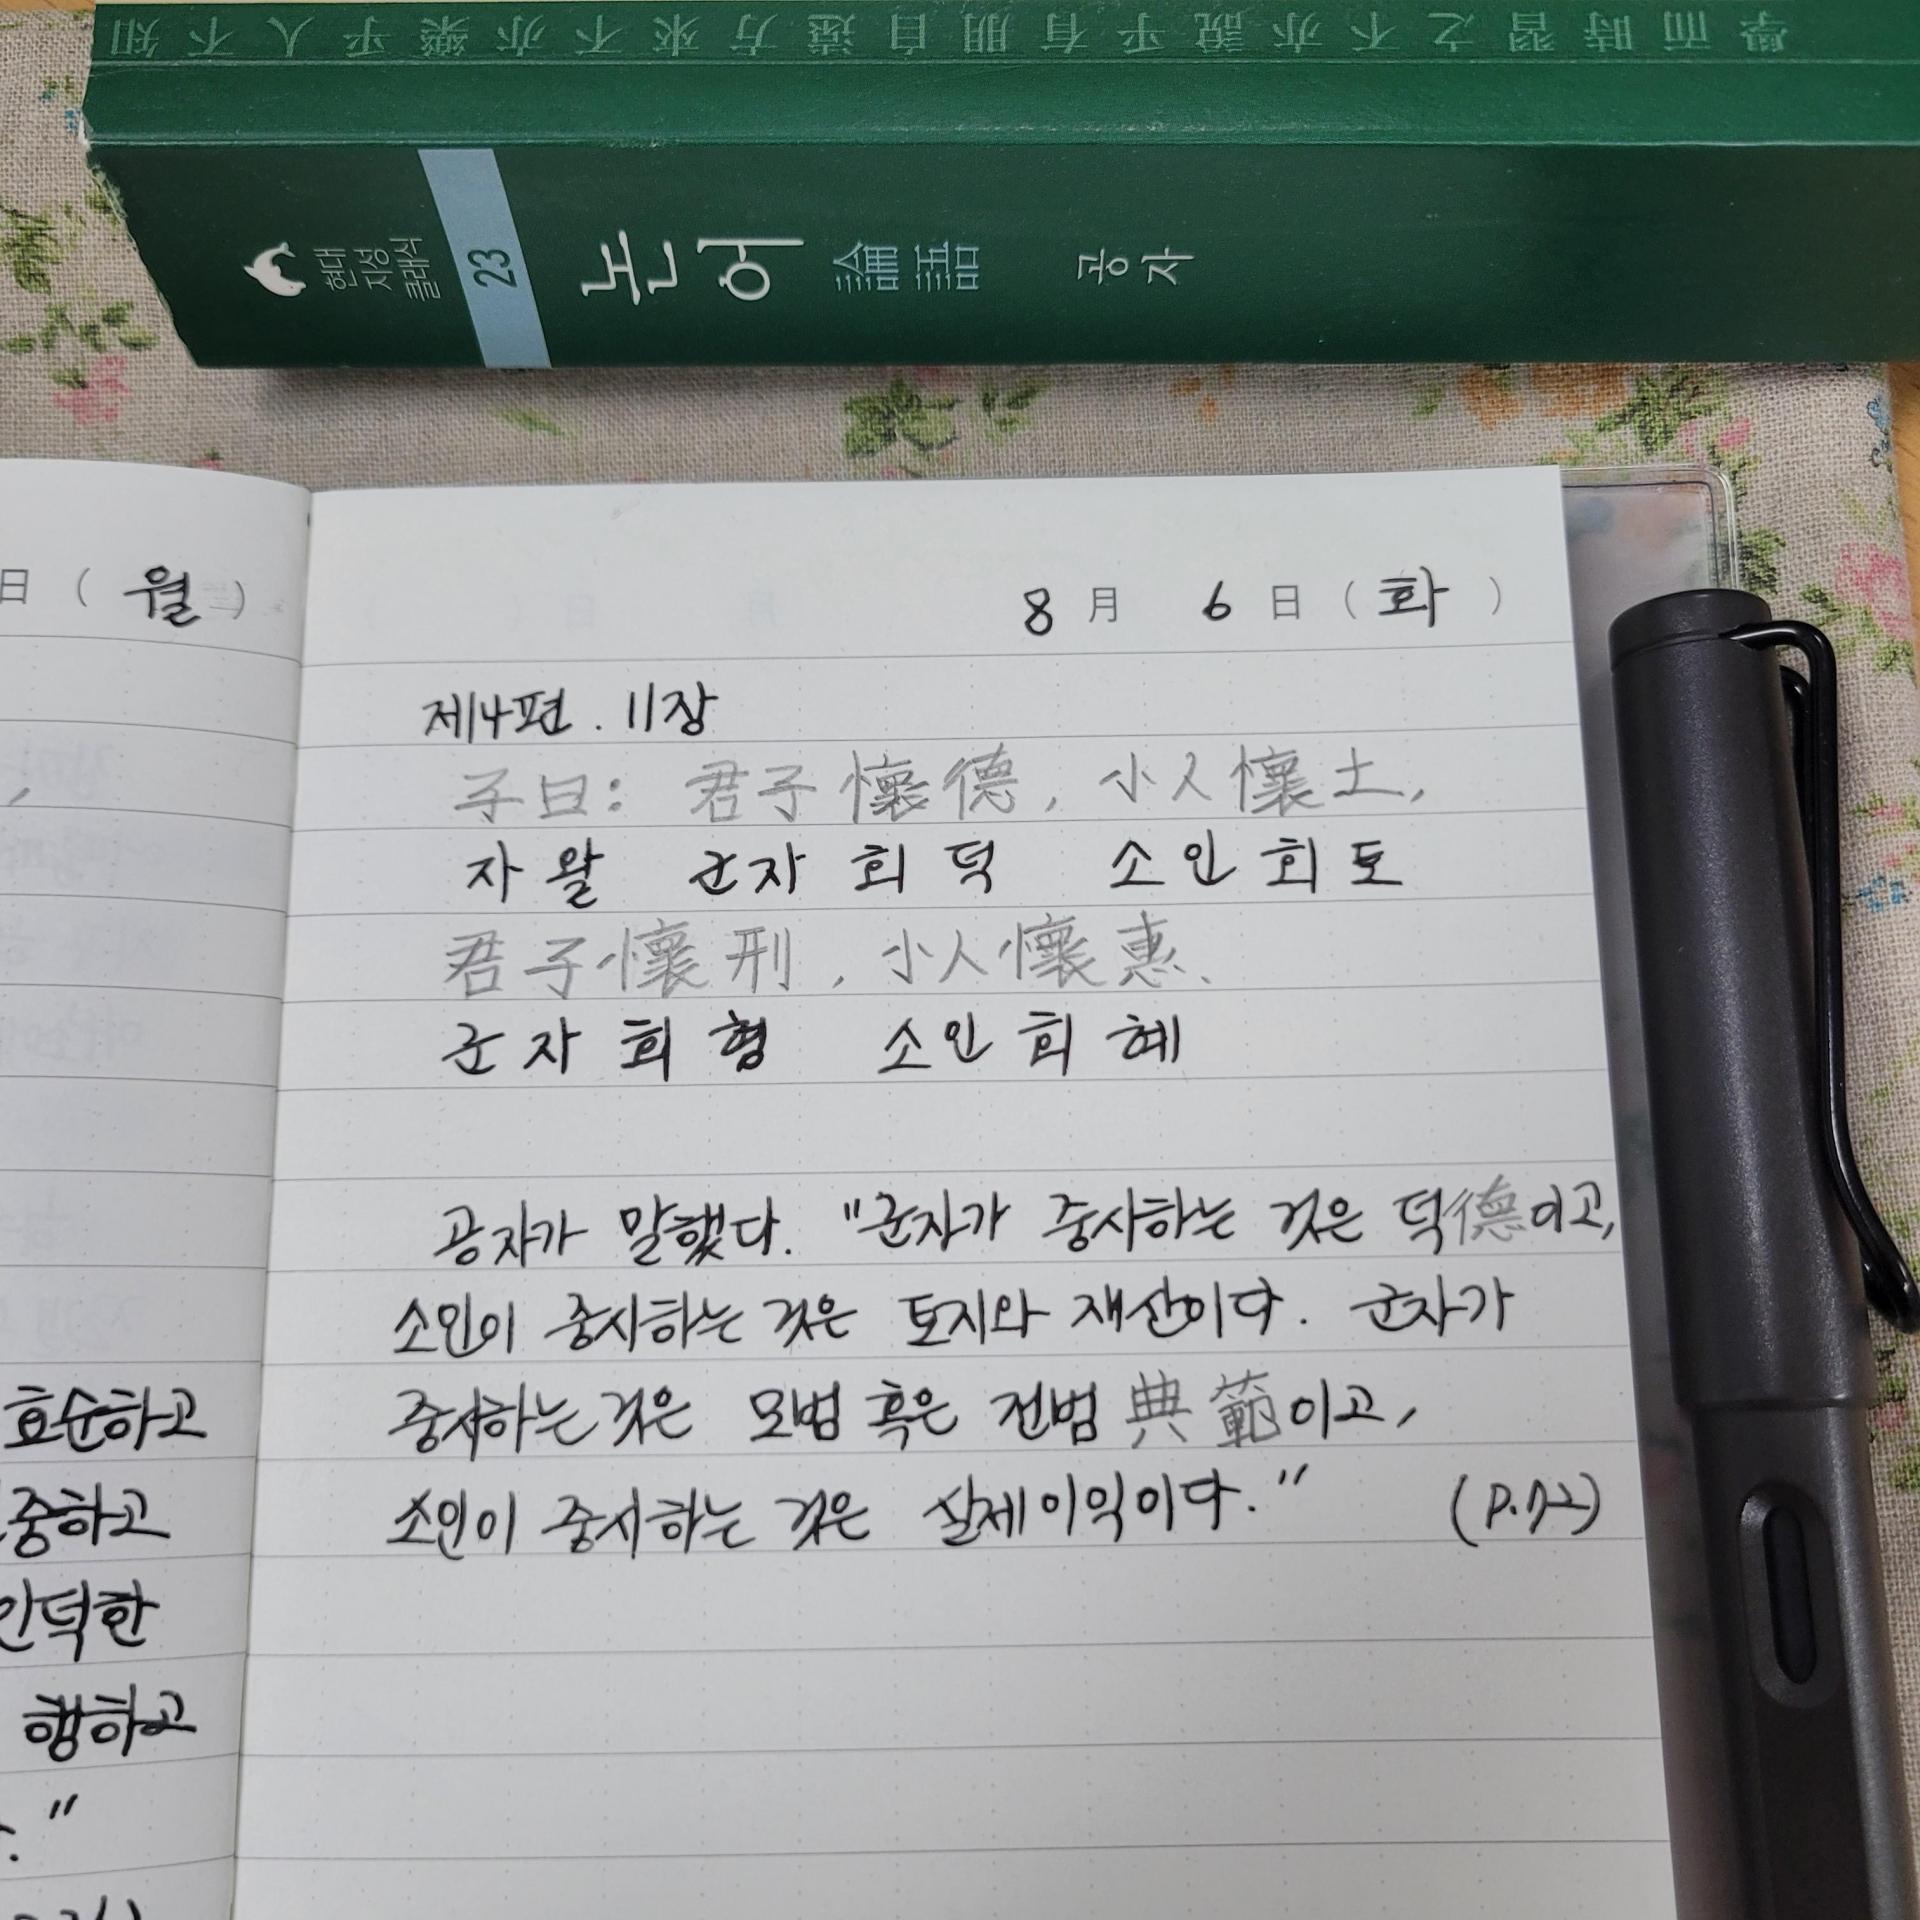 學而時習之不亦說乎有朋自遠方來不亦樂乎人不知
현대
지성
클래식
23
논어 論語 공자
日 ( 월 )
효순하고
중하고
인덕한
행하고
"
8 月 6 日 ( 화 )
제4편. 11장
子曰: 君子懷德, 小人懷土,
자왈 군자회덕 소인회토
君子懷刑, 小人懷惠.
군자회형 소인회혜
공자가 말했다. "군자가 중시하는 것은 덕德이고,
소인이 중시하는 것은 토지와 재산이다. 군자가
중시하는 것은 모범 혹은 전범 典範이고,
소인이 중시하는 것은 실제이익이다." (p.72)